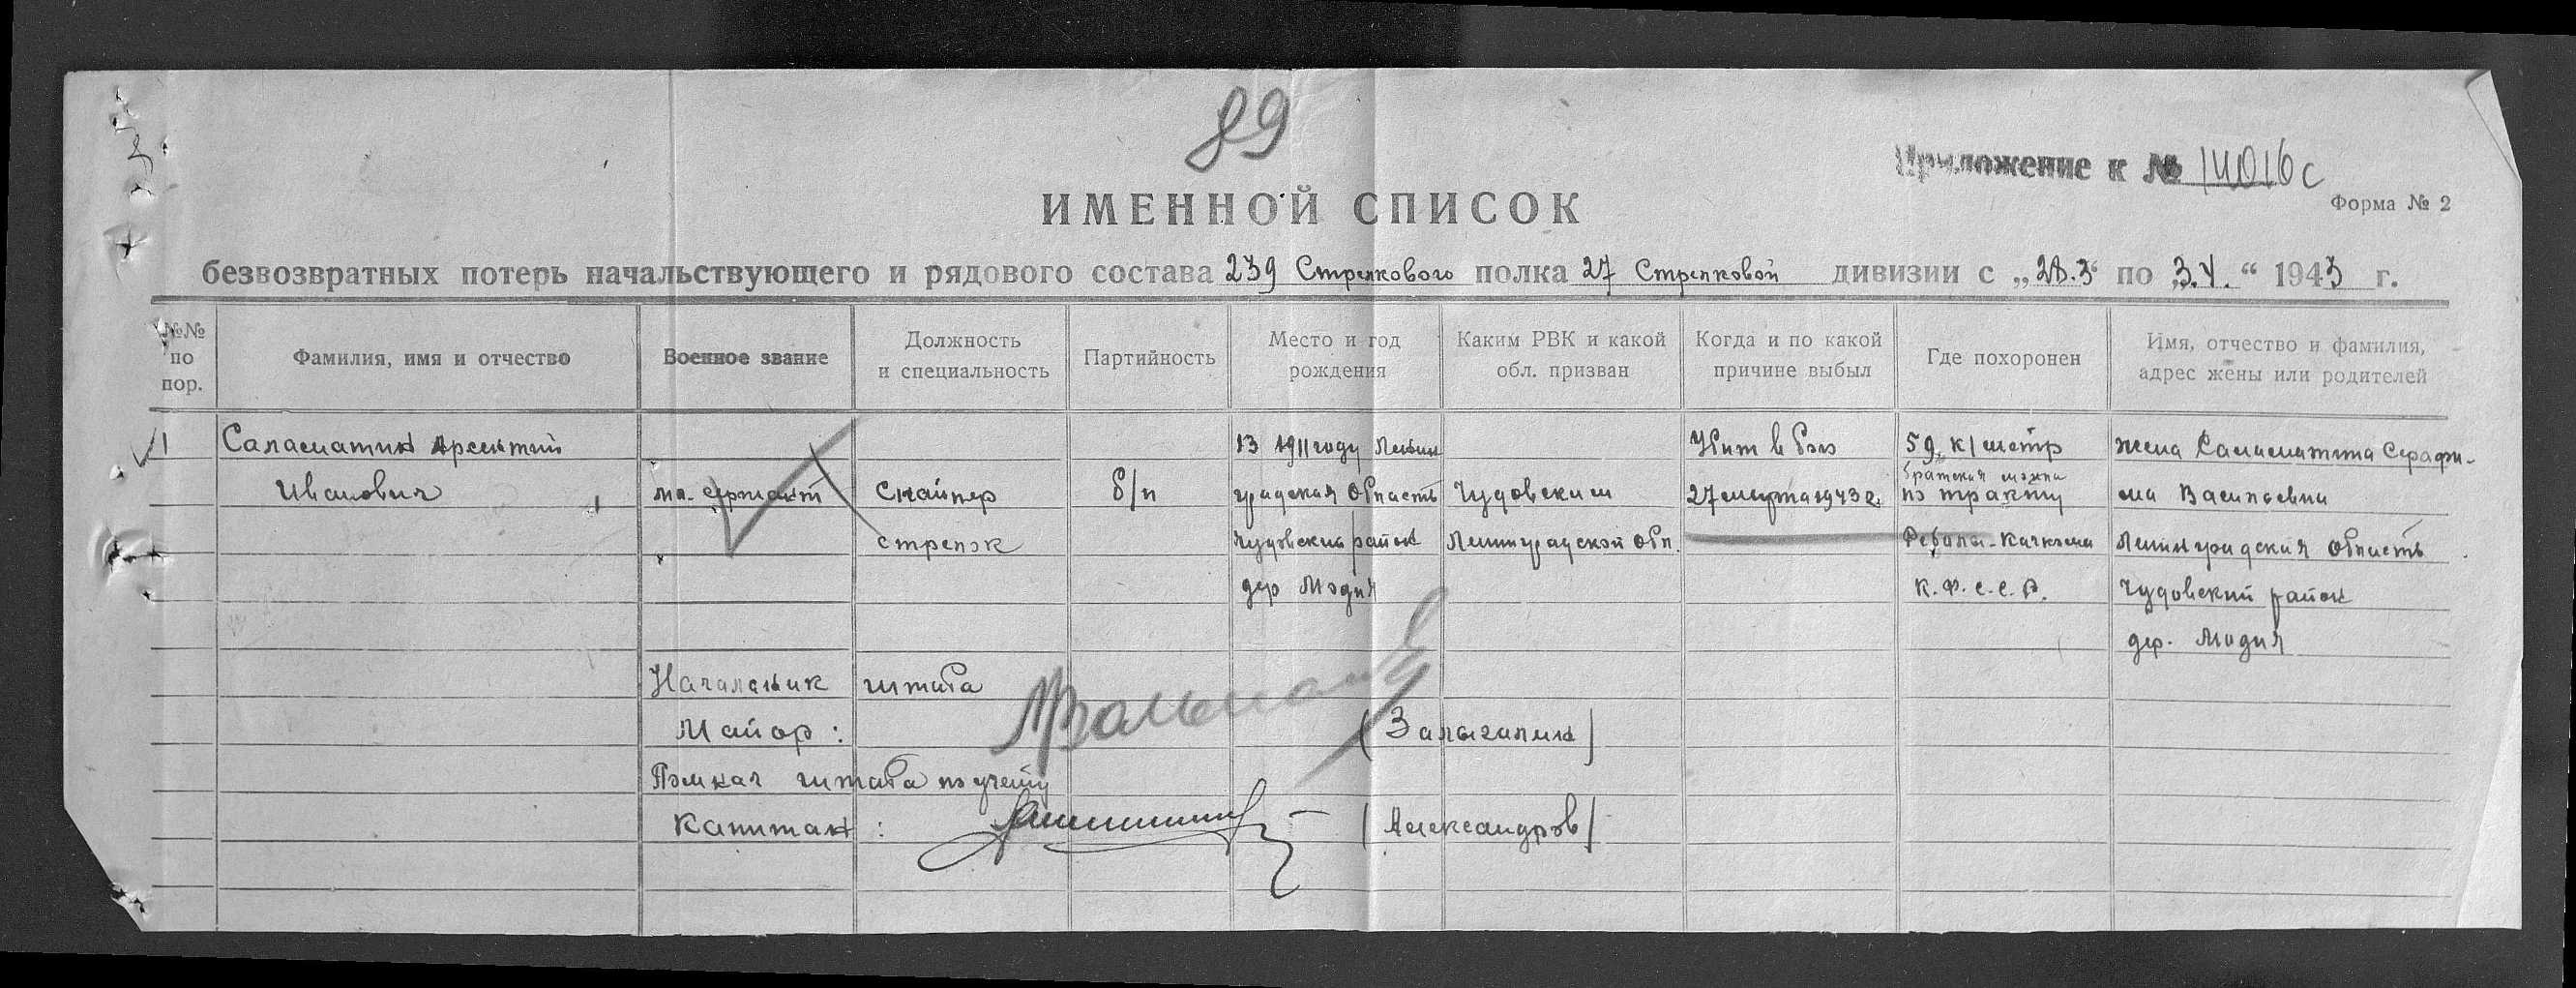 89
Приложение к № 14016с
Форма № 2
ИМЕННОЙ СПИСОК
безвозвратных потерь начальствующего и рядового состава 239 Стрелкового полка 27 Стрелковой дивизии с „28.3“ по „3.4.“ 1943 г.
№№ по пор.
Фамилия, имя и отчество
Военное звание
Должность и специальность
Партийность
Место и год рождения
Каким РВК и какой обл. призван
Когда и по какой причине выбыл
Где похоронен
Имя, отчество и фамилия, адрес жены или родителей
1 Саласматин Арсентий 1911 году Ленин Убит в бою 59 к/метр жена Саласматина Серафи-
братская
Иванович мл. сержант Снайпер б/п градская область Чудовским 27 марта 1943 г. по тракту ма Васильевна
стрелок Чудовский район Ленинградской обл. Реболы-Качкома Ленинградская область
дер Модня К.Ф.С.С.Р. Чудовский район
дер. Модня
Начальник штаба
Майор: (Залыгалин)
Помнач штаба по учету
Капитан: (Александров)